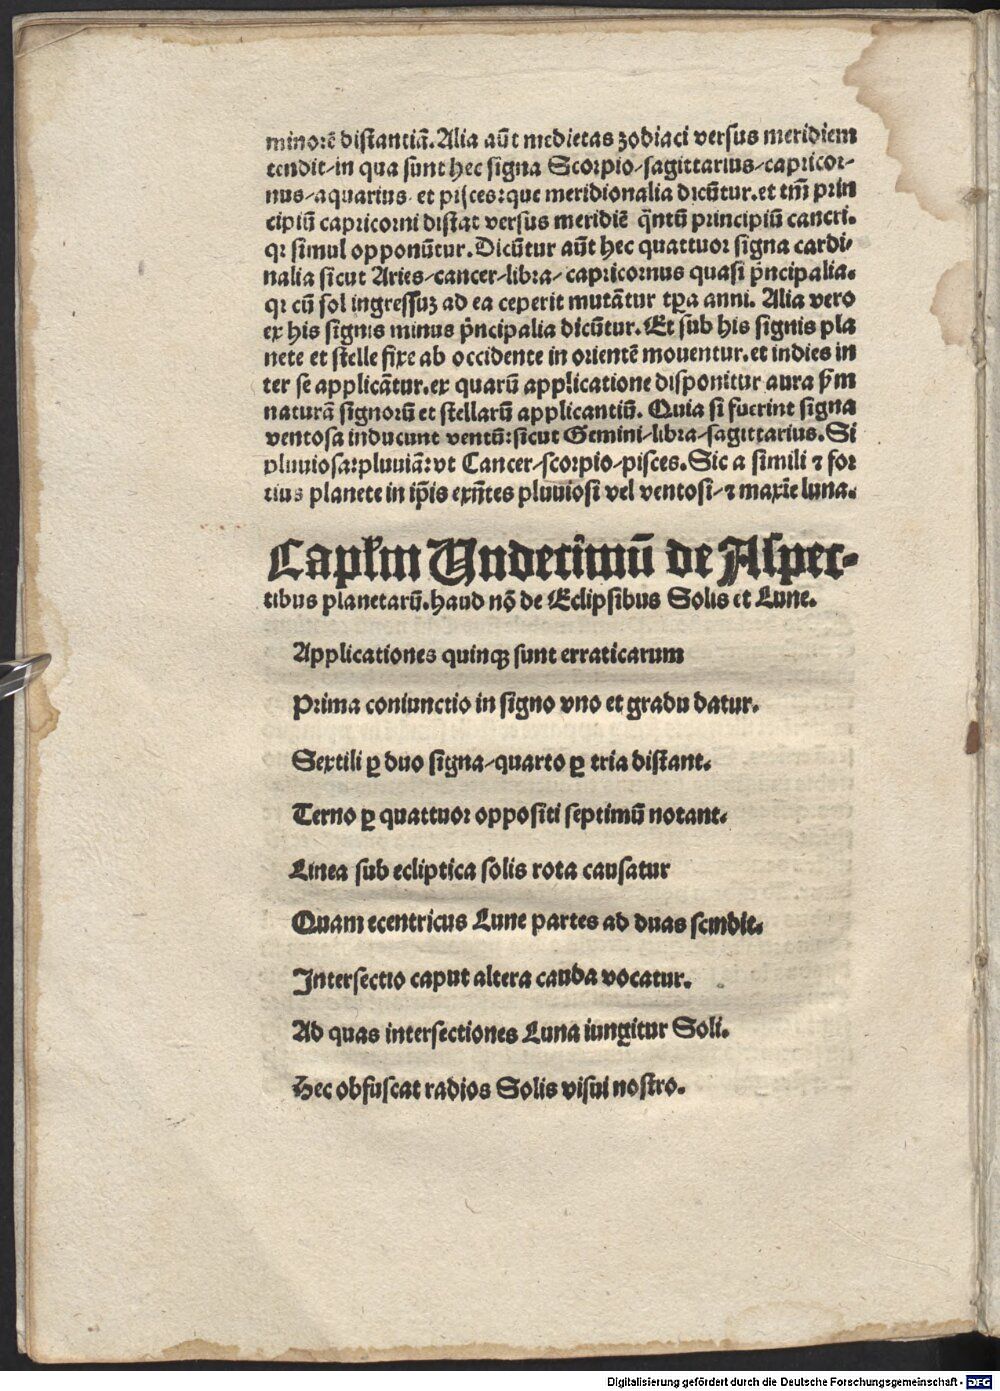 minorē distantiā. Alia aūt medietas zodiaci versus meridiem
tendit/in qua sunt hec signa Scorpio/sagittarius/capricor-
nus/aquarius et pisces:que meridionalia dicūtur.et tm̄ prin
cipiū capricorni distat versus meridiē q̄ntū principiū cancri.
qr simul opponūtur. Dicūtur aūt hec quattuor signa cardi-
nalia sicut Aries/cancer/libra/capricornus quasi p̄ncipalia.
qr cū sol ingressuʒ ad ea ceperit mutātur tp̄a anni. Alia vero
ex his signis minus p̄ncipalia dicūtur. Et sub his signis pla
nete et stelle fixe ab occidente in orientē mouentur.et indies in
ter se applicātur.ex quarū applicatione disponitur aura ẜm
naturā signorū et stellarū applicantiū. Quia si fuerint signa
ventosa inducunt ventū:sicut Gemini/libra/sagittarius. Si
pluuiosa:pluuiā:vt Cancer/scorpio/pisces. Sic a simili ⁊ for
tius planete in ip̄is exn̄tes pluuiosi vel ventosi/⁊ maxīe luna.
Caplm Undecimū de Aspec-
tibus planetarū. haud nō de Eclipsibus Solis et Lune.
Applicationes quinqꝫ sunt erraticarum
Prima coniunctio in signo vno et gradu datur.
Sextili ꝑ duo signa/quarto ꝑ tria distant.
Terno ꝑ quattuor oppositi septimū notant.
Linea sub ecliptica solis rota causatur
Quam ecentricus Lune partes ad duas scindit.
Intersectio caput altera cauda vocatur.
Ad quas intersectiones Luna iungitur Soli.
Hec obfuscat radios Solis visui nostro.
Digitalisierung gefördert durch die Deutsche Forschungsgemeinschaft - DFG